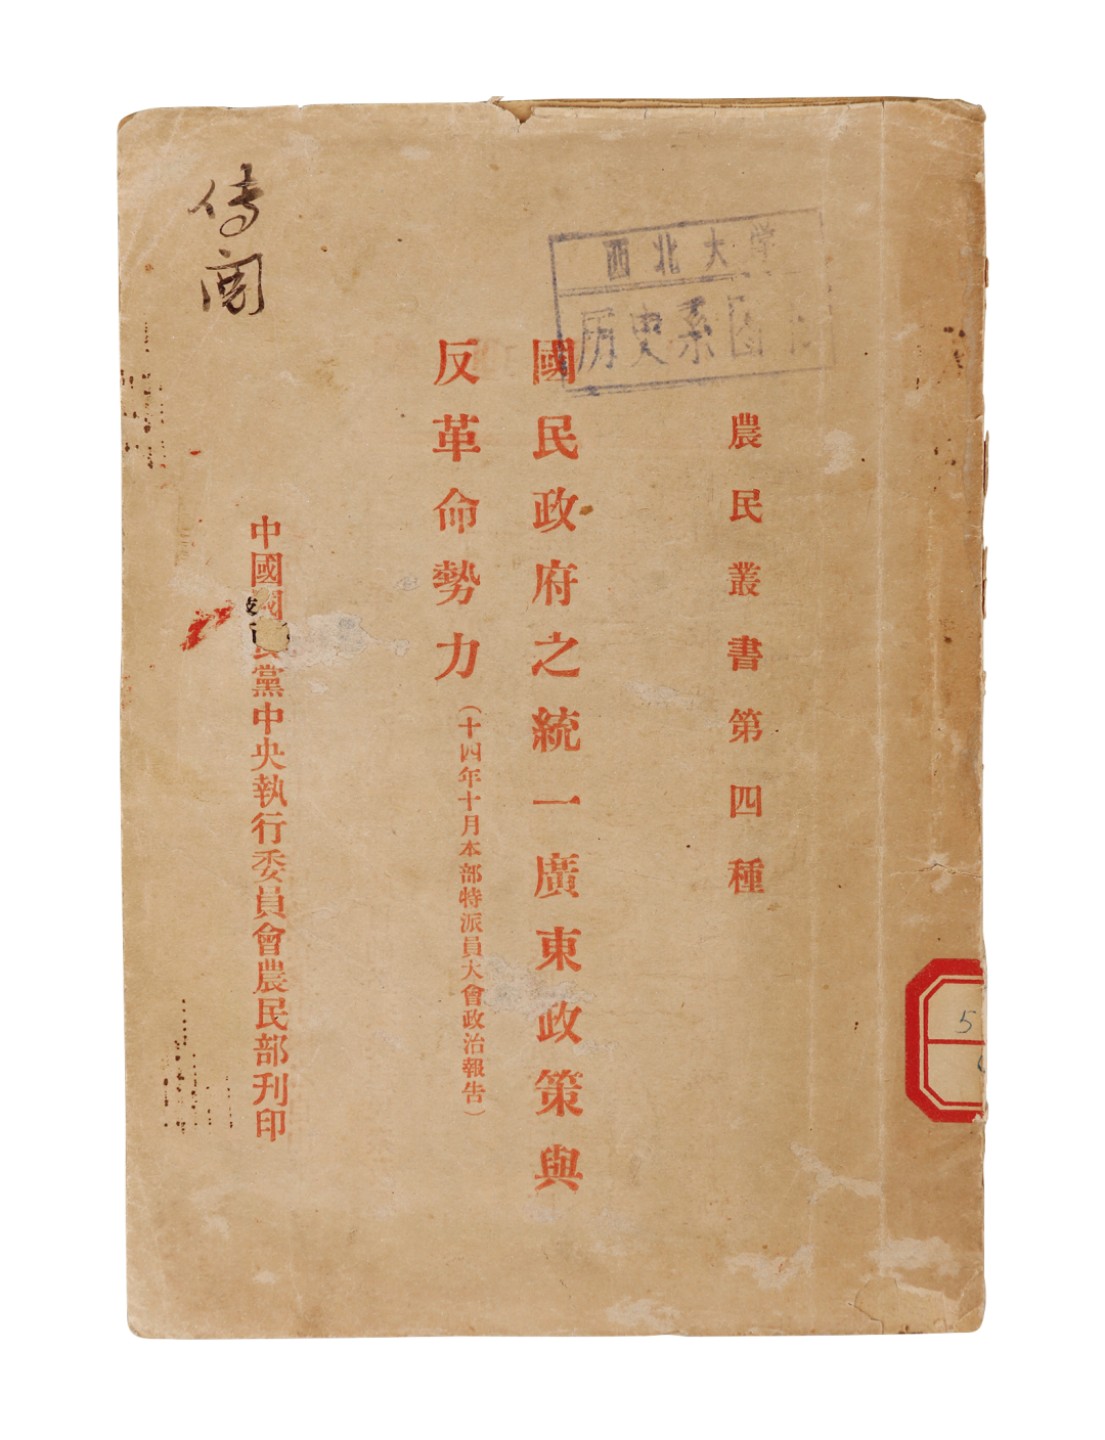 西北大学
历史系图
農民叢書第四種
國民政府之統一廣東政策與
反革命勢力
（十四年十月本部特派員大會政治報告）
中國國民黨中央執行委員會農民部刊印
傳閱
5